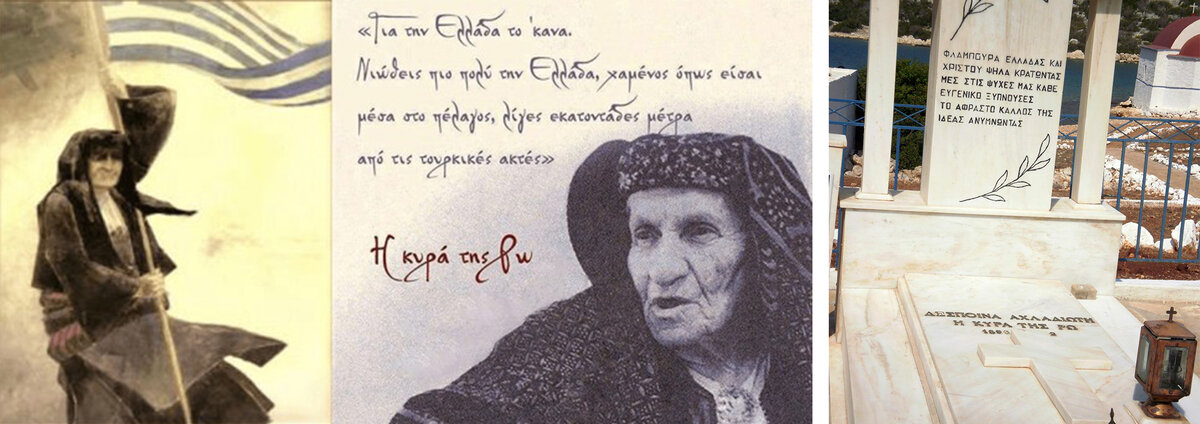 «Για την Ελλάδα το 'κανα.
Νιώθεις πιο πολύ την Ελλάδα, χαμένος όπως είσαι
μέσα στο πέλαγος, λίγες εκατοντάδες μέτρα
από τις τουρκικές ακτές»
Η κυρά της Ρω
ΦΛΑΜΠΟΥΡΑ ΕΛΛΑΔΑΣ ΚΑΙ
ΧΡΙΣΤΟΥ ΨΗΛΑ ΚΡΑΤΩΝΤΑΣ
ΜΕΣ ΣΤΙΣ ΨΥΧΕΣ ΜΑΣ ΚΑΘΕ
ΕΥΓΕΝΙΚΟ ΞΥΠΝΟΥΣΕΣ
ΤΟ ΑΦΡΑΣΤΟ ΚΑΛΛΟΣ ΤΗΣ
ΙΔΕΑΣ ΑΝΥΜΝΩΝΤΑΣ
ΔΕΣΠΟΙΝΑ ΑΧΛΑΔΙΩΤΗ
Η ΚΥΡΑ ΤΗΣ ΡΩ